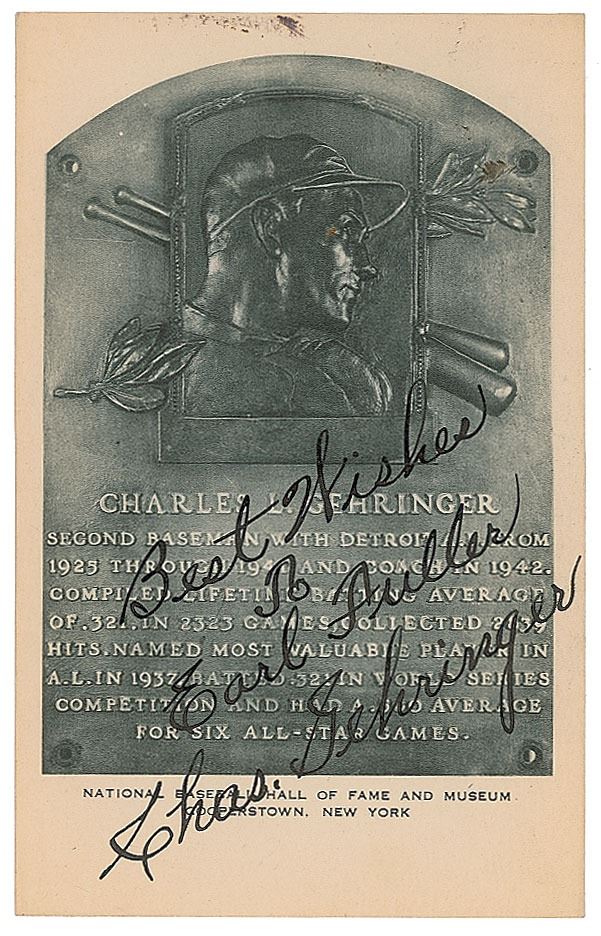 CHARLES L. GEHRINGER
SECOND BASEMAN WITH DETROIT A.L. FROM
1925 THROUGH 1941 AND COACH IN 1942.
COMPILED LIFETIME BATTING AVERAGE
OF .321. IN 2323 GAMES. COLLECTED 2839
HITS. NAMED MOST VALUABLE PLAYER IN
A.L. IN 1937. BATTED .321 IN WORLD SERIES
COMPETITION AND HAD A .500 AVERAGE
FOR SIX ALL-STAR GAMES.
Best Wishes
To
Earl Fuller
Chas. Gehringer
NATIONAL BASEBALL HALL OF FAME AND MUSEUM
COOPERSTOWN, NEW YORK